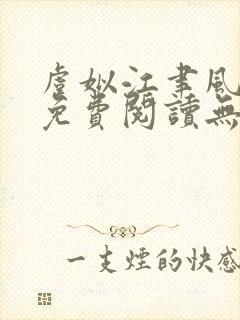 虐姒江聿風
免費閱讀無
一支煙的快感